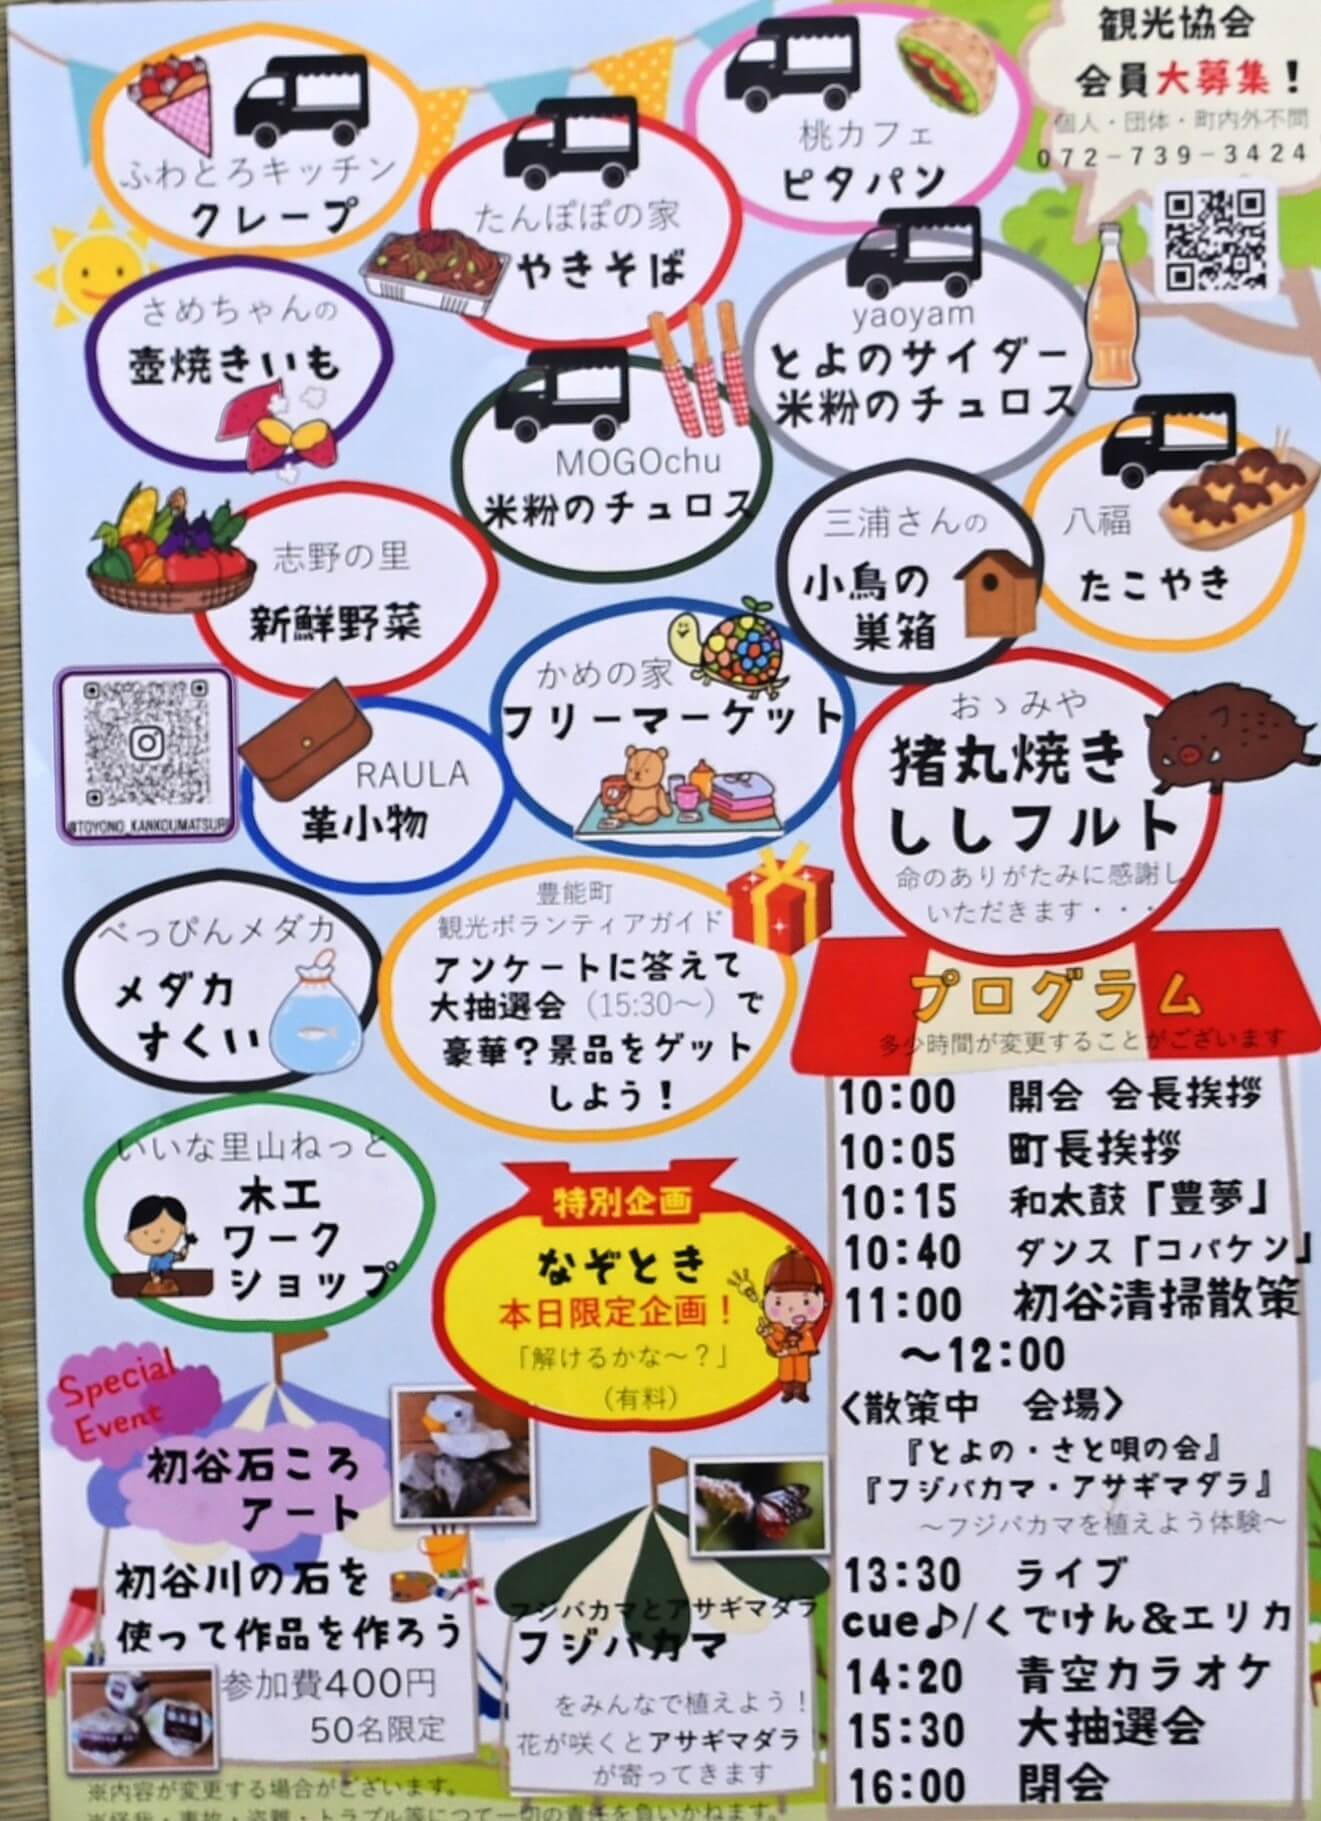 観光協会
会員大募集！
個人・団体・町内外不問
072-739-3424
ふわとろキッチン
クレープ
たんぽぽの家
やきそば
桃カフェ
ピタパン
さめちゃんの
壺焼きいも
MOGOchu
米粉のチュロス
yaoyam
とよのサイダー
米粉のチュロス
八福
たこやき
志野の里
新鮮野菜
三浦さんの
小鳥の
巣箱
かめの家
フリーマーケット
@TOYONO_KANKOUMATSURI
RAULA
革小物
おゝみや
猪丸焼き
ししフルト
命のありがたみに感謝し
いただきます・・・
べっぴんメダカ
メダカ
すくい
豊能町
観光ボランティアガイド
アンケートに答えて
大抽選会（15:30〜）で
豪華？景品をゲット
しよう！
いいな里山ねっと
木工
ワーク
ショップ
特別企画
なぞとき
本日限定企画！
「解けるかな〜？」
（有料）
Special
Event
初谷石ころ
アート
初谷川の石を
使って作品を作ろう
参加費400円
50名限定
フジバカマとアサギマダラ
フジバカマ
をみんなで植えよう！
花が咲くとアサギマダラ
が寄ってきます
プログラム
多少時間が変更することがございます
10:00 開会 会長挨拶
10:05 町長挨拶
10:15 和太鼓「豊夢」
10:40 ダンス「コバケン」
11:00 初谷清掃散策
〜12:00
〈散策中 会場〉
『とよの・さと唄の会』
『フジバカマ・アサギマダラ』
〜フジバカマを植えよう体験〜
13:30 ライブ
cue♪/くでけん＆エリカ
14:20 青空カラオケ
15:30 大抽選会
16:00 閉会
※内容が変更する場合がございます。
※怪我・事故・盗難・トラブル等につて一切の責任を負いかねます。